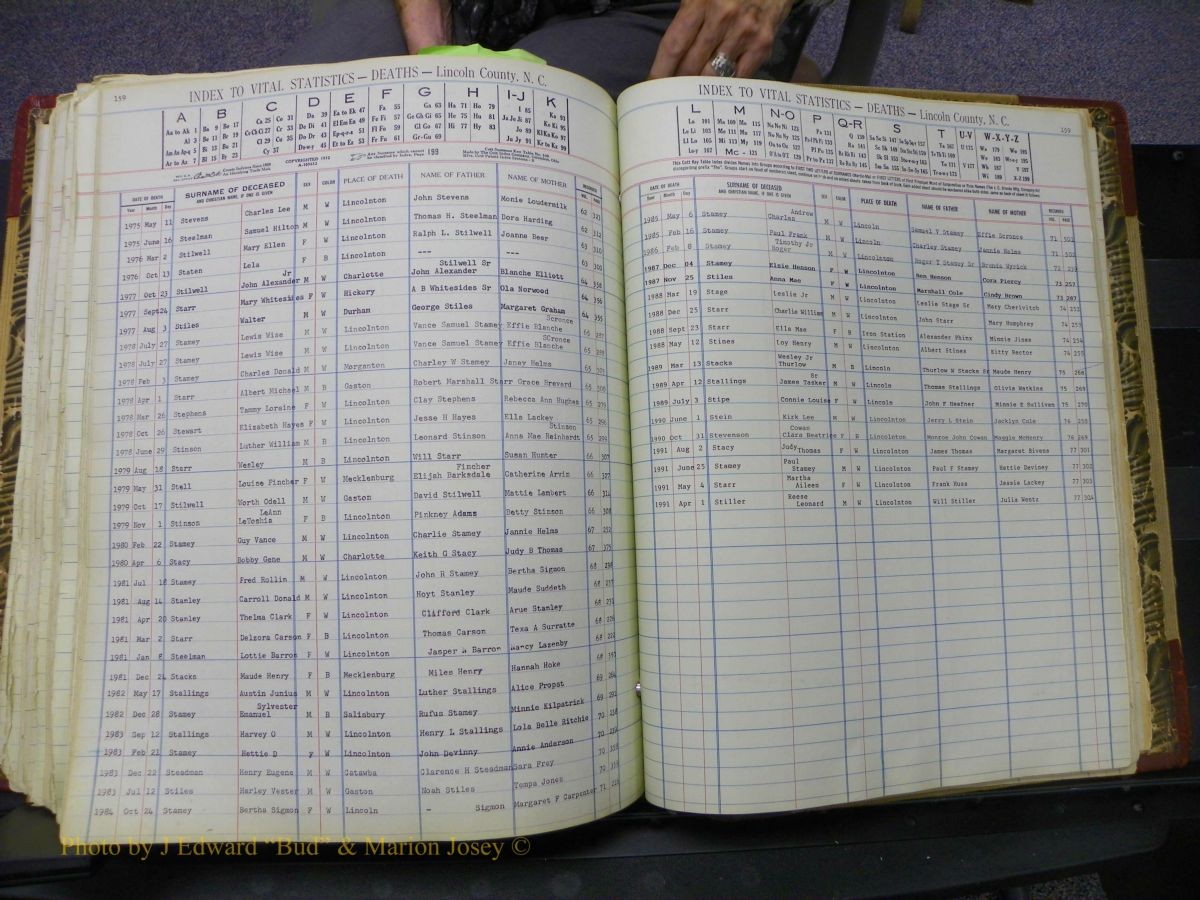 159
INDEX TO VITAL STATISTICS — DEATHS — Lincoln County, N. C.
A B C D E F G H I-J K
DATE OF DEATH SURNAME OF DECEASED AND CHRISTIAN NAME, IF ONE IS GIVEN SEX COLOR PLACE OF DEATH NAME OF FATHER NAME OF MOTHER RECORDED
Year Month Day VOL. PAGE
1975 May 11 Stevens Charles Lee M W Lincolnton John Stevens Monie Loudermilk 62 121
1975 June 16 Steelman Samuel Hilton M W Lincolnton Thomas H. Steelman Dora Harding 62 312
1976 Mar 2 Stilwell Mary Ellen F W Lincolnton Ralph L. Stilwell Joanne Beer 63 310
1976 Oct 13 Staten Lela F B Lincolnton --- --- 63 300
1977 Oct 23 Stilwell John Alexander Jr M W Charlotte John Alexander Stilwell Sr Blanche Elliott 64 358
1977 Sept 24 Starr Mary Whitesides F W Hickory A B Whitesides Sr Ola Norwood 64 356
1977 Aug 3 Stiles Walter M W Durham George Stiles Margaret Graham 64 355
1978 July 27 Stamey Lewis Wise M W Lincolnton Vance Samuel Stamey Effie Blanche Scronce 65 297
1978 July 27 Stamey Lewis Wise M W Lincolnton Vance Samuel Stamey Effie Blanche Scronce 65
1978 Feb 3 Stamey Charles Donald M W Morganton Charley W Stamey Janey Helms 65
1978 Apr 1 Starr Albert Michael M B Gaston Robert Marshall Starr Grace Brevard 65 300
1978 Mar 26 Stephens Tammy Loraine F W Lincolnton Clay Stephens Rebecca Ann Hughes 65
1978 Oct 26 Stewart Elizabeth Hayes F W Lincolnton Jesse H Hayes Ella Lackey 65
1978 June 29 Stinson Luther William M B Lincolnton Leonard Stinson Anna Mae Reinhardt Stinson 65
1979 Aug 18 Starr Wesley M B Lincolnton Will Starr Susan Hunter 66 307
1979 May 31 Stell Louise Fincher F W Mecklenburg Elijah Barksdale Fincher Catherine Arvin 66
1979 Oct 17 Stilwell Worth Odell M W Gaston David Stilwell Mattie Lambert 66 314
1979 Nov 1 Stinson LeToshia LeAnn F B Lincolnton Pinkney Adams Betty Stinson 66 308
1980 Feb 22 Stamey Guy Vance M W Lincolnton Charlie Stamey Jannie Helms 67 252
1980 Apr 6 Stacy Bobby Gene M W Charlotte Keith G Stacy Judy B Thomas 67 375
1981 Jul 18 Stamey Fred Rollin M W Lincolnton John R Stamey Bertha Sigmon 68
1981 Aug 14 Stanley Carroll Donald M W Lincolnton Hoyt Stanley Maude Suddeth 68
1981 Apr 20 Stanley Thelma Clark F W Lincolnton Clifford Clark Arue Stanley 68 231
1981 Mar 2 Starr Delzora Carson F B Lincolnton Thomas Carson Texa A Surratte 68
1981 Jan 8 Steelman Lottie Barron F W Lincolnton Jasper Barron Narcy Lazenby 68 222
1981 Dec 24 Stacks Maude Henry F B Mecklenburg Miles Henry Hannah Hoke 68
1982 May 17 Stallings Austin Junius M W Lincolnton Luther Stallings Alice Propst 69
1982 Dec 28 Stamey Emanuel Sylvester M B Salisbury Rufus Stamey Minnie Kilpatrick 69
1983 Sep 12 Stallings Harvey O M W Lincolnton Henry L Stallings Lola Belle Ritchie 70
1983 Feb 21 Stamey Hettie D F W Lincolnton John Devinny Annie Anderson 70
1983 Dec 22 Steadman Henry Eugene M W Catawba Clarence H Steadman Sara Frey 70
1983 Jul 12 Stiles Harley Vester M W Gaston Noah Stiles Tempa Jones 70
1984 Oct 24 Stamey Bertha Sigmon F W Lincoln - Sigmon Margaret F Carpenter 71
INDEX TO VITAL STATISTICS — DEATHS — Lincoln County, N. C.
159
L M N-O P Q-R S T U-V W-X-Y-Z
DATE OF DEATH SURNAME OF DECEASED AND CHRISTIAN NAME, IF ONE IS GIVEN SEX COLOR PLACE OF DEATH NAME OF FATHER NAME OF MOTHER RECORDED
Year Month Day VOL. PAGE
1985 May 6 Stamey Charles Andrew M W Lincoln Samuel Y Stamey Effie Scronce 71
1985 Feb 16 Stamey Paul Frank M W Lincoln Charley Stamey Jannie Helms 71
1986 Feb 8 Stamey Timothy Jr Roger M W Lincoln Roger T Stamey Sr 72
1987 Dec 04 Stamey Elsie Henson F W Lincolnton Ben Henson Cora Piercy 73 257
1987 Nov 25 Stiles Anna Mae F W Lincolnton Marshall Cole Cindy Brown 73 287
1988 Mar 19 Stage Leslie Jr M W Lincolnton Leslie Stage Sr Mary Cherivitch 74
1988 Dec 25 Starr Charlie William M W Lincolnton John Starr Mary Humphrey 74 253
1988 Sept 23 Starr Ella Mae F B Iron Station Alexander Phinx Minnie Jines 74 254
1988 May 12 Stines Loy Henry M W Lincolnton Albert Stines Kitty Rector 74 255
1989 Mar 13 Stacks Wesley Jr Thurlow M B Lincoln Thurlow W Stacks Sr Maude Henry 75 268
1989 Apr 12 Stallings James Tasker Sr M W Lincoln Thomas Stallings Olivia Watkins 75 269
1989 July 3 Stipe Connie Louise F W Lincoln John F Heafner Minnie E Sullivan 75 270
1990 June 1 Stein Kirk Lee M W Lincolnton Jerry L Stein Jacklyn Cole 76
1990 Oct 31 Stevenson Clara Beatrice Cowan F B Lincolnton Monroe John Cowan Maggie McHenry 76 269
1991 Aug 2 Stacy Judy Thomas F W Lincolnton James Thomas Margaret Bivens 77 301
1991 June 25 Stamey Paul Stamey M W Lincolnton Paul F Stamey Hattie Deviney 77 302
1991 May 4 Starr Martha Aileen F W Lincolnton Frank Huss Jessie Lackey 77 303
1991 Apr 1 Stiller Reese Leonard M W Lincolnton Will Stiller Julia Wentz 77 304
Photo by J Edward "Bud" & Marion Josey ©